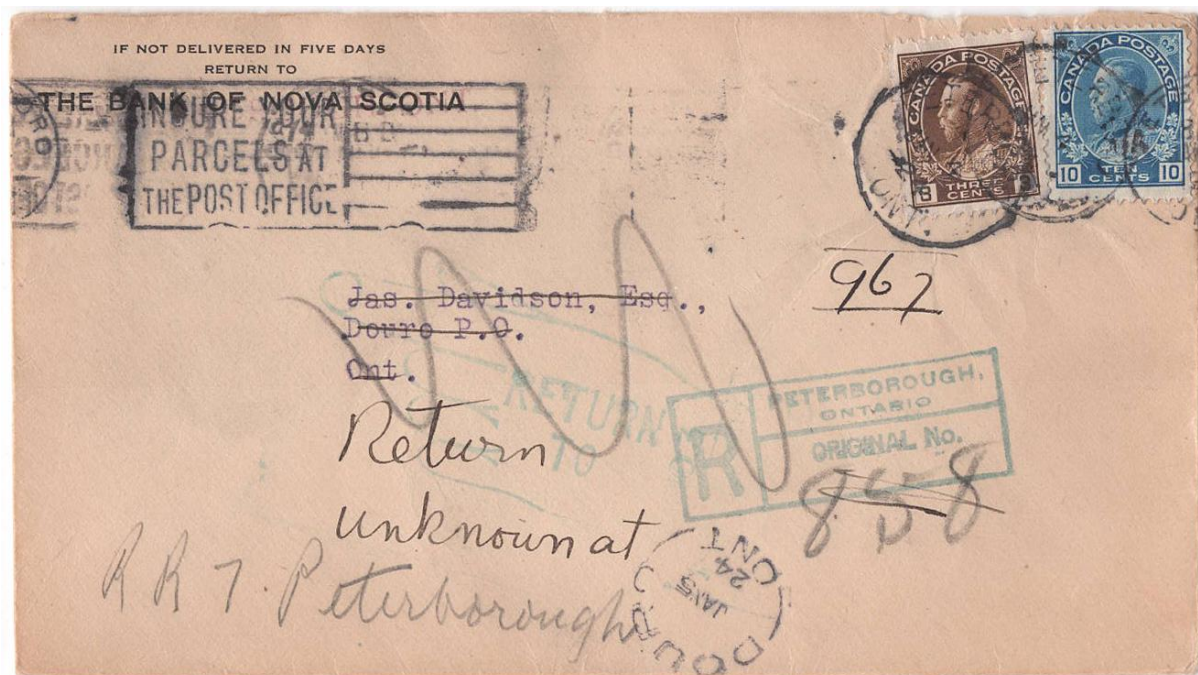 IF NOT DELIVERED IN FIVE DAYS
RETURN TO
THE BANK OF NOVA SCOTIA
INSURE YOUR
PARCELS AT
THE POST OFFICE
CANADA POSTAGE
3 THREE 3
CENTS
CANADA POSTAGE
10 TEN 10
CENTS
967
Jas. Davidson, Esq.,
Douro P.O.
Ont.
RETURN
TO
PETERBOROUGH,
ONTARIO
R
ORIGINAL No.
858
Return
unknown at
R R 7. Peterborough
DOURO
JAN 5
24
ONT